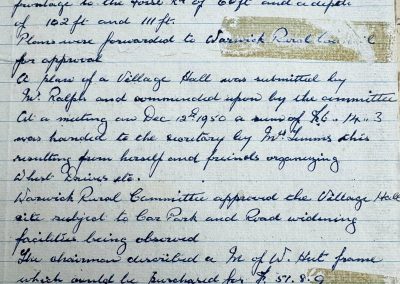 frontage to the Fosse Rd of 60ft and a depth
of 102 ft and 111 ft.
Plans were forwarded to Warwick Rural Council
for approval
A plan of a Village Hall was submitted by
Mr. Ralph and commended upon by the committee
At a meeting on Dec 12th 1950 a sum of £6-14-3
was handed to the secretary by Mrs Timms this
resulting from herself and friends organizing
Whist Drives etc.
Warwick Rural Committee approved the Village Hall
site subject to Car Park and Road widening
facilities being observed
The chairman described a M of W. Hut frame
which could be purchased for £. 51. 8. 9